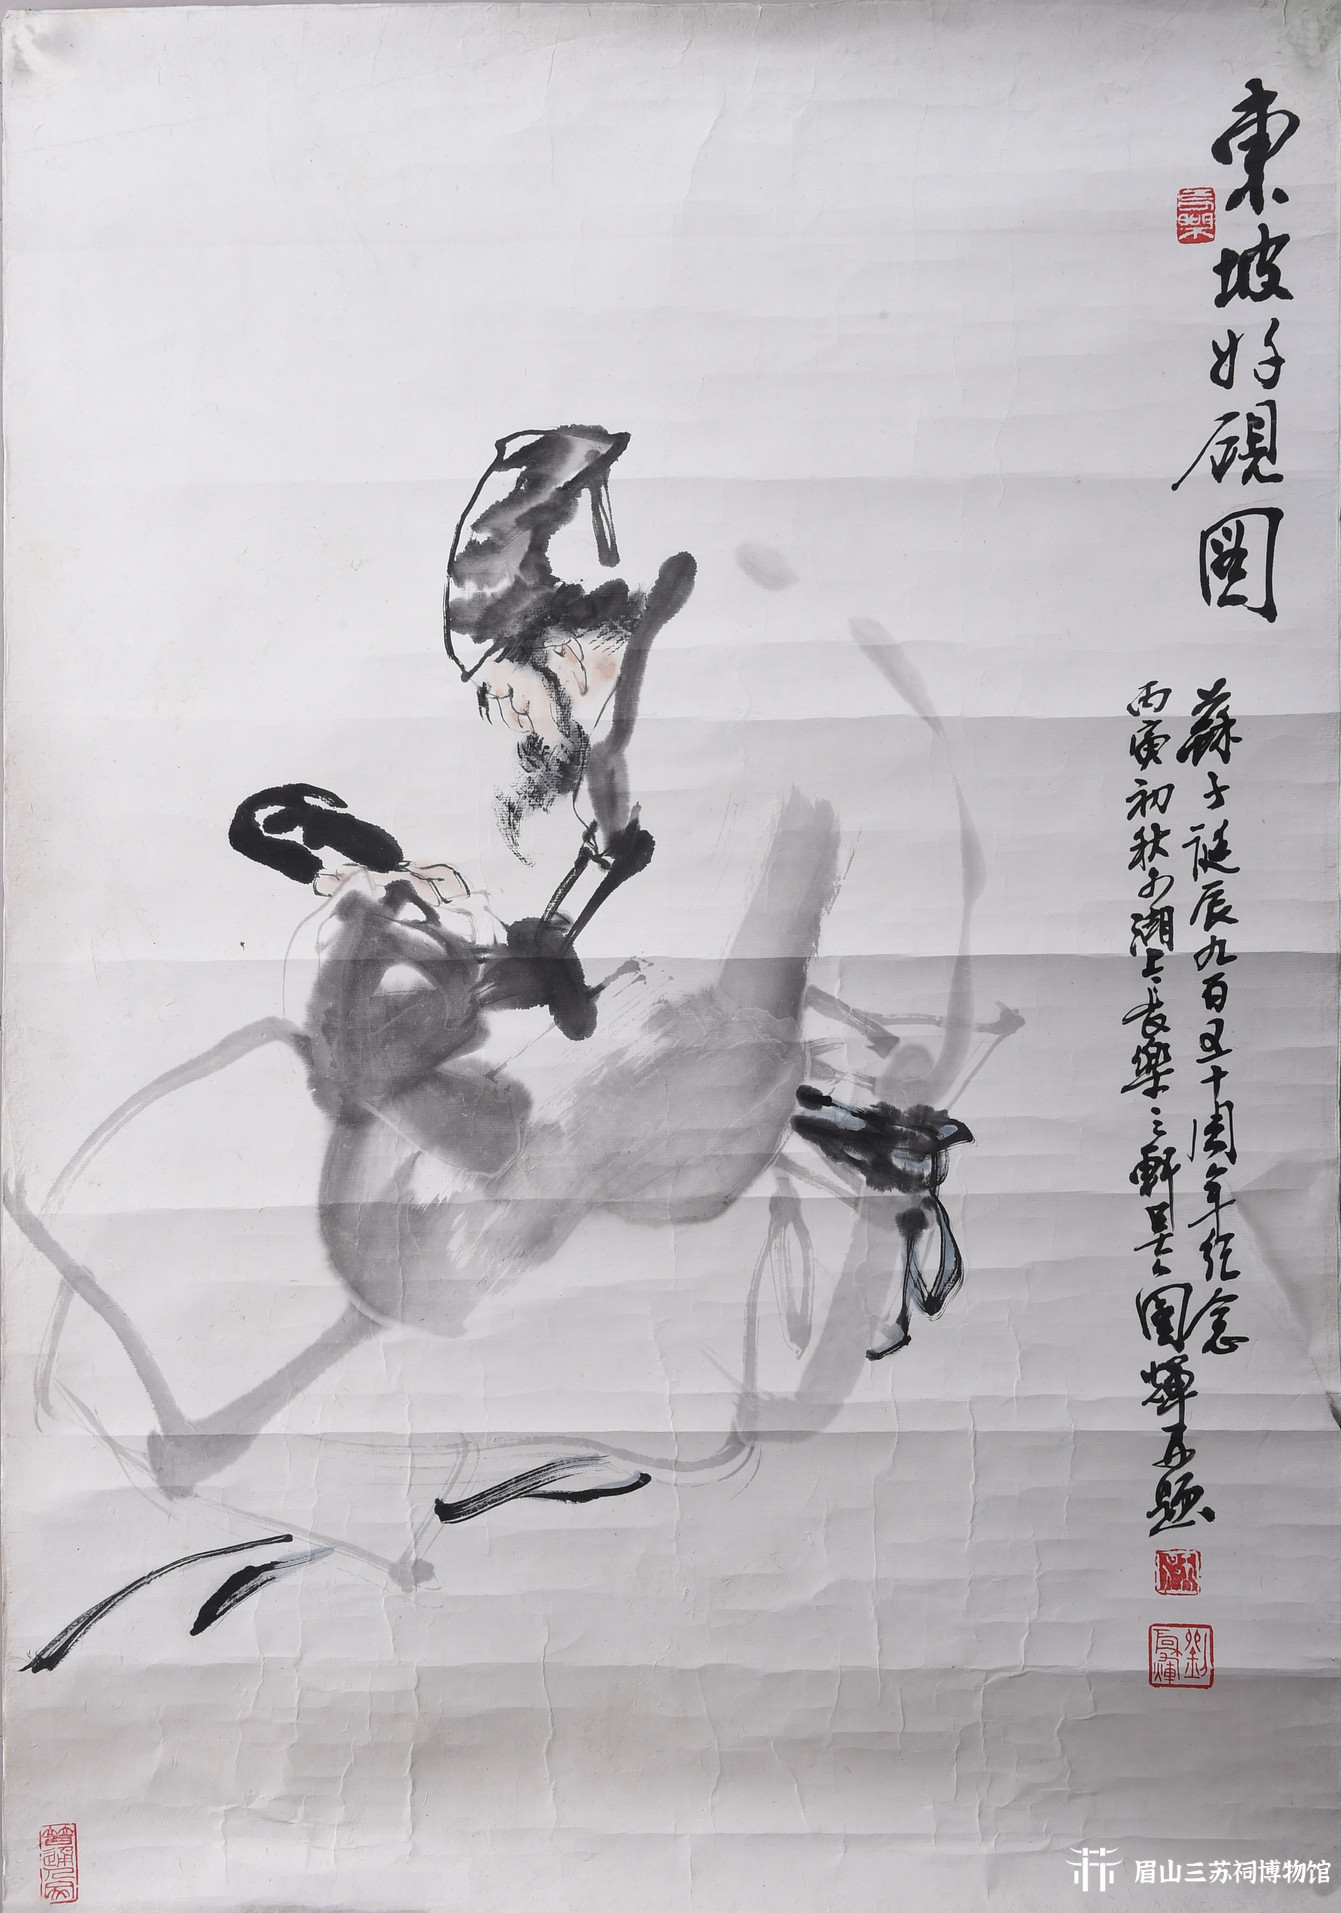 東坡好硯圖
蘇子誕辰九百五十周年纪念
丙寅初秋於湖上長樂之軒吴国輝并题
眉山三苏祠博物馆